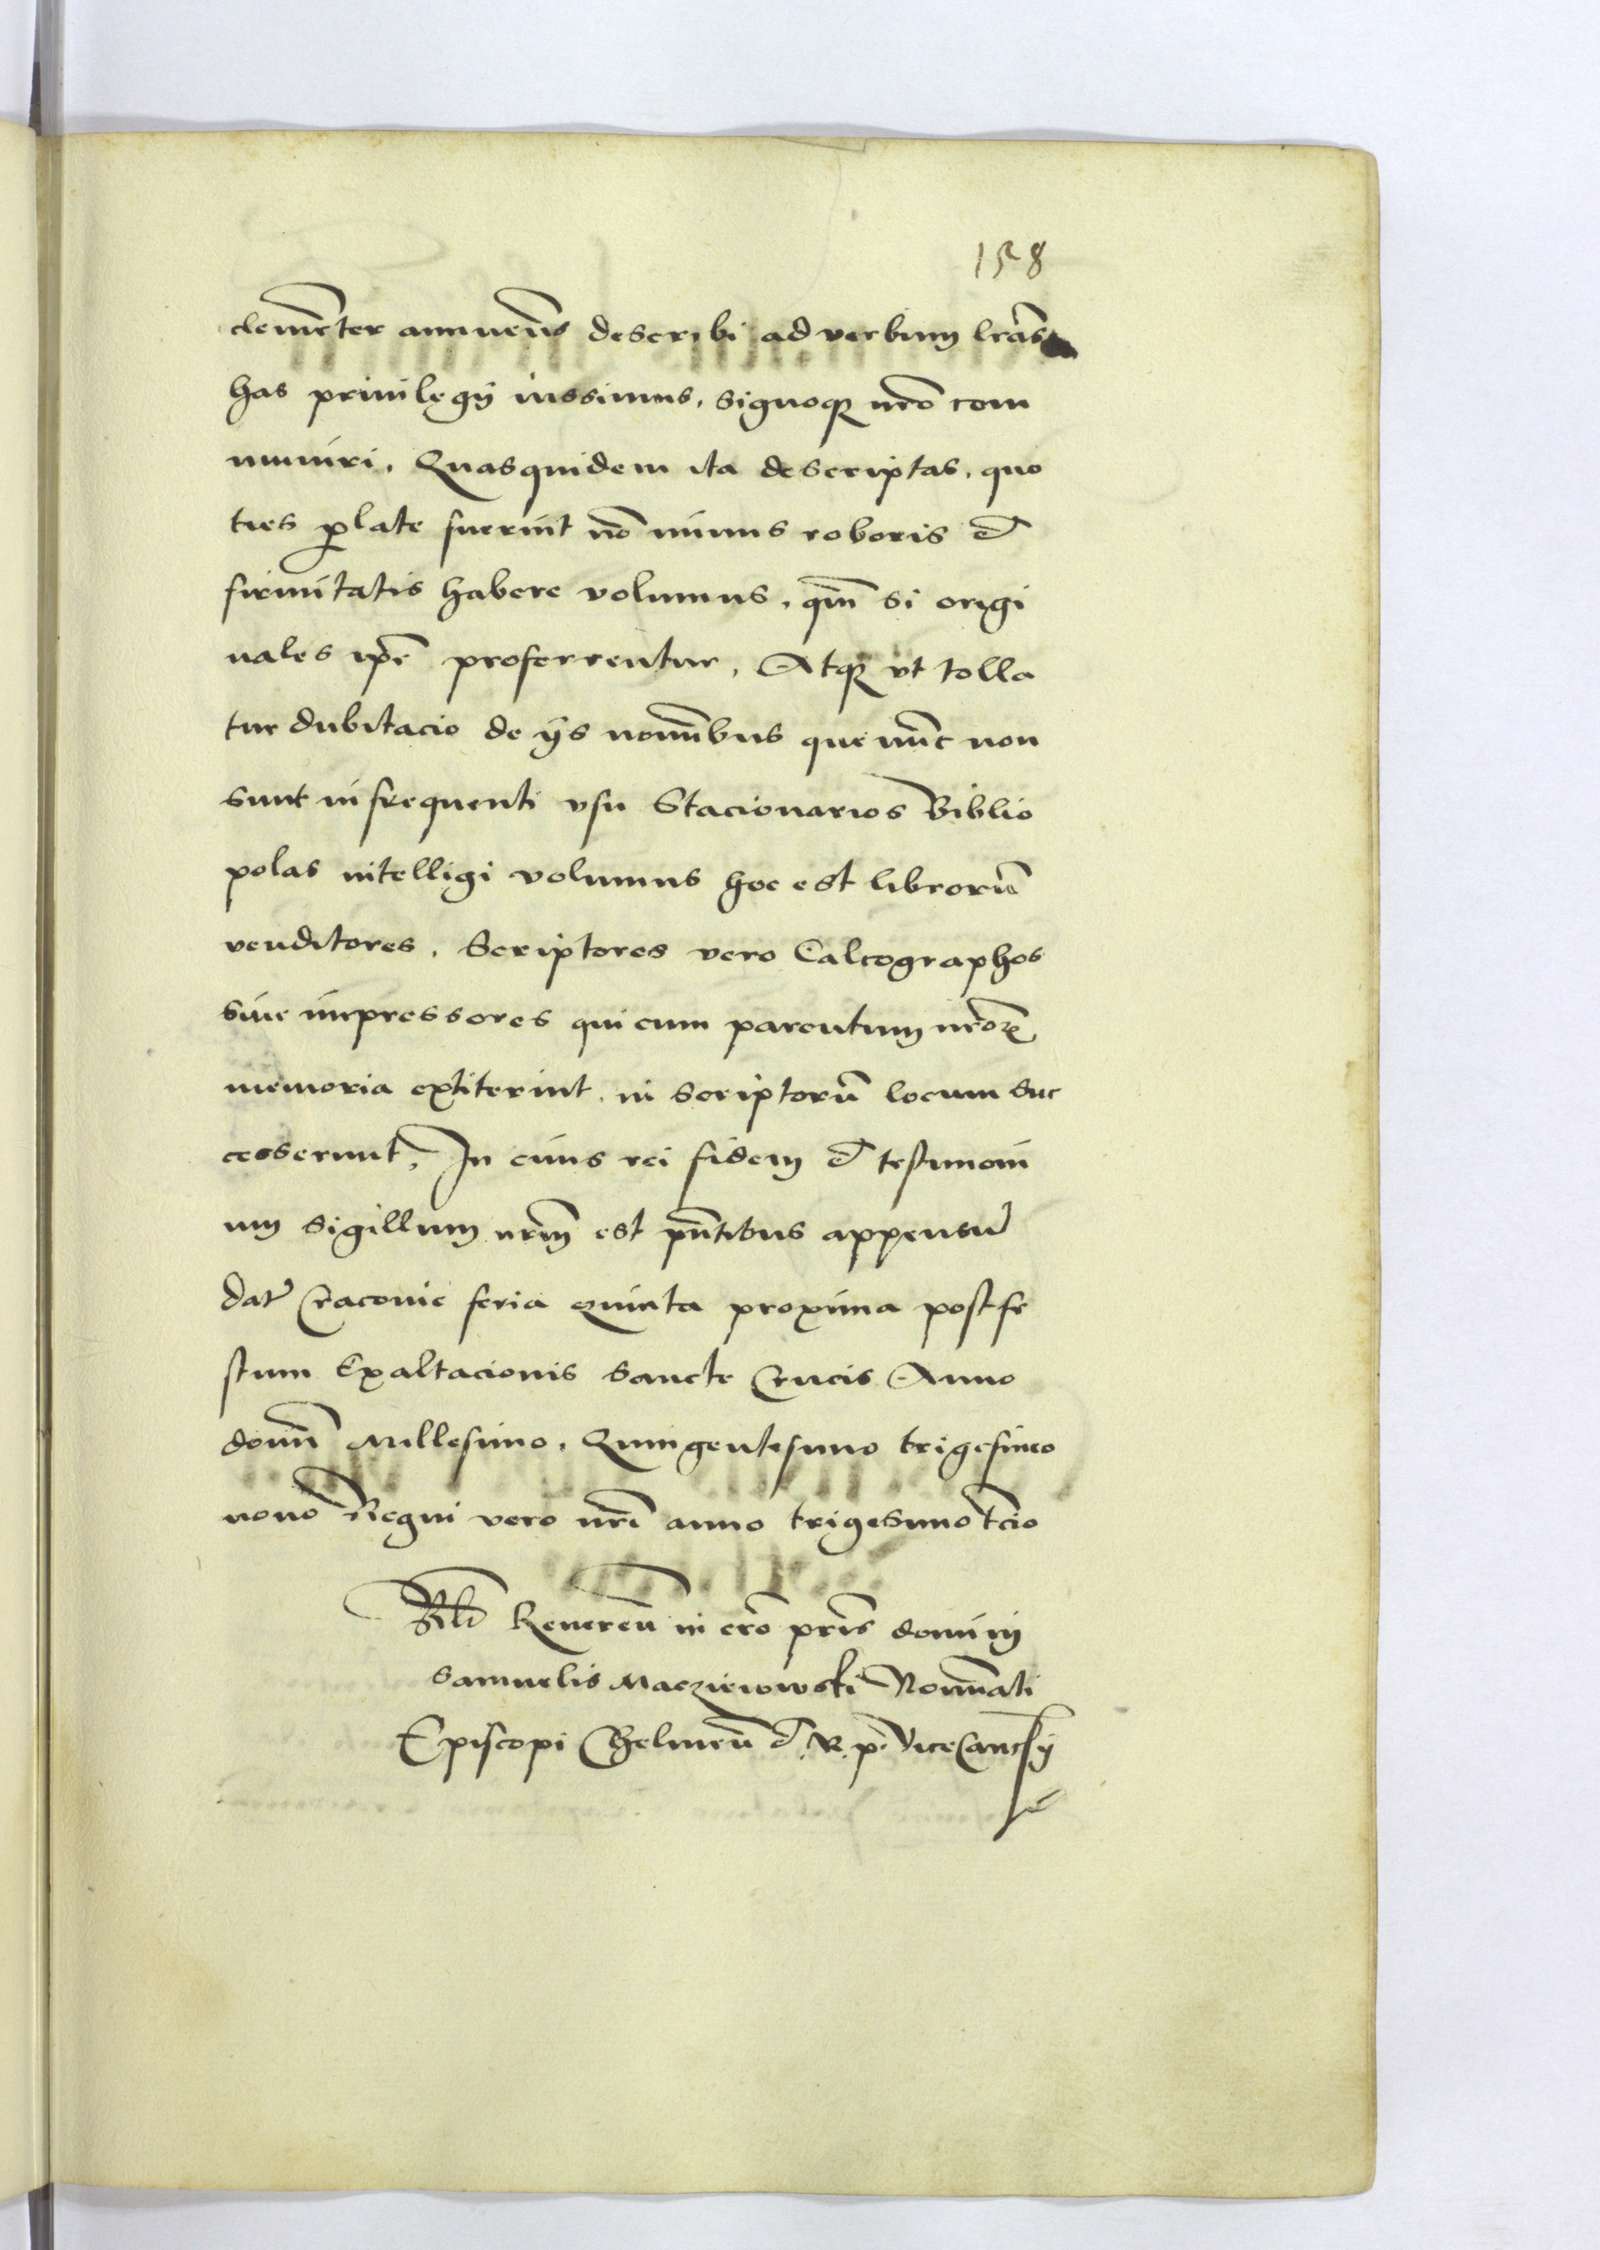 158
clemēter annuen̄ describi ad verbum lrās
has priuilegij iussimus, signoqꝫ nr̄o com
muniri. Quasquidem ita descriptas, quo
ties ꝑlate fuerint nō minus roboris et
firmitatis habere volumus, qm̄ si origi
nales ip̄e proferrentur, Atqꝫ vt tolla
tur dubitacio de ijs nomībus que nūc non
sunt in frequenti vsu Stacionarios Biblio
polas intelligi volumus hoc est librorū
venditores, Scriptores vero Calcographos
siue impressores qui cum parentum nr̄oꝝ
memoria extiterint in scriptorū locum suc
cesserunt, In cuius rei fidem et testimoni
um sigillum nr̄m est pn̄tibus appensū
dat̄ Cracouie feria quinta proxima post fe
stum Exaltacionis sancte Crucis Anno
domī Millesimo, Quingentesimo trigesimo
nono Regni vero nr̄i anno trigesimo tēio
Rlō Reueren̄ in cr̄o pr̄is domini
Samuelis Macziewowski Nomīati
Episcopi Chelmeñ et .R. p. ViceCanc̄rij